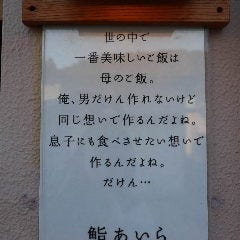 世の中で
一番美味しいご飯は
母のご飯。
俺、男だけん作れないけど
同じ想いで作るんだよね。
息子にも食べさせたい想いで
作るんだよね。
だけん…
鮨あいら